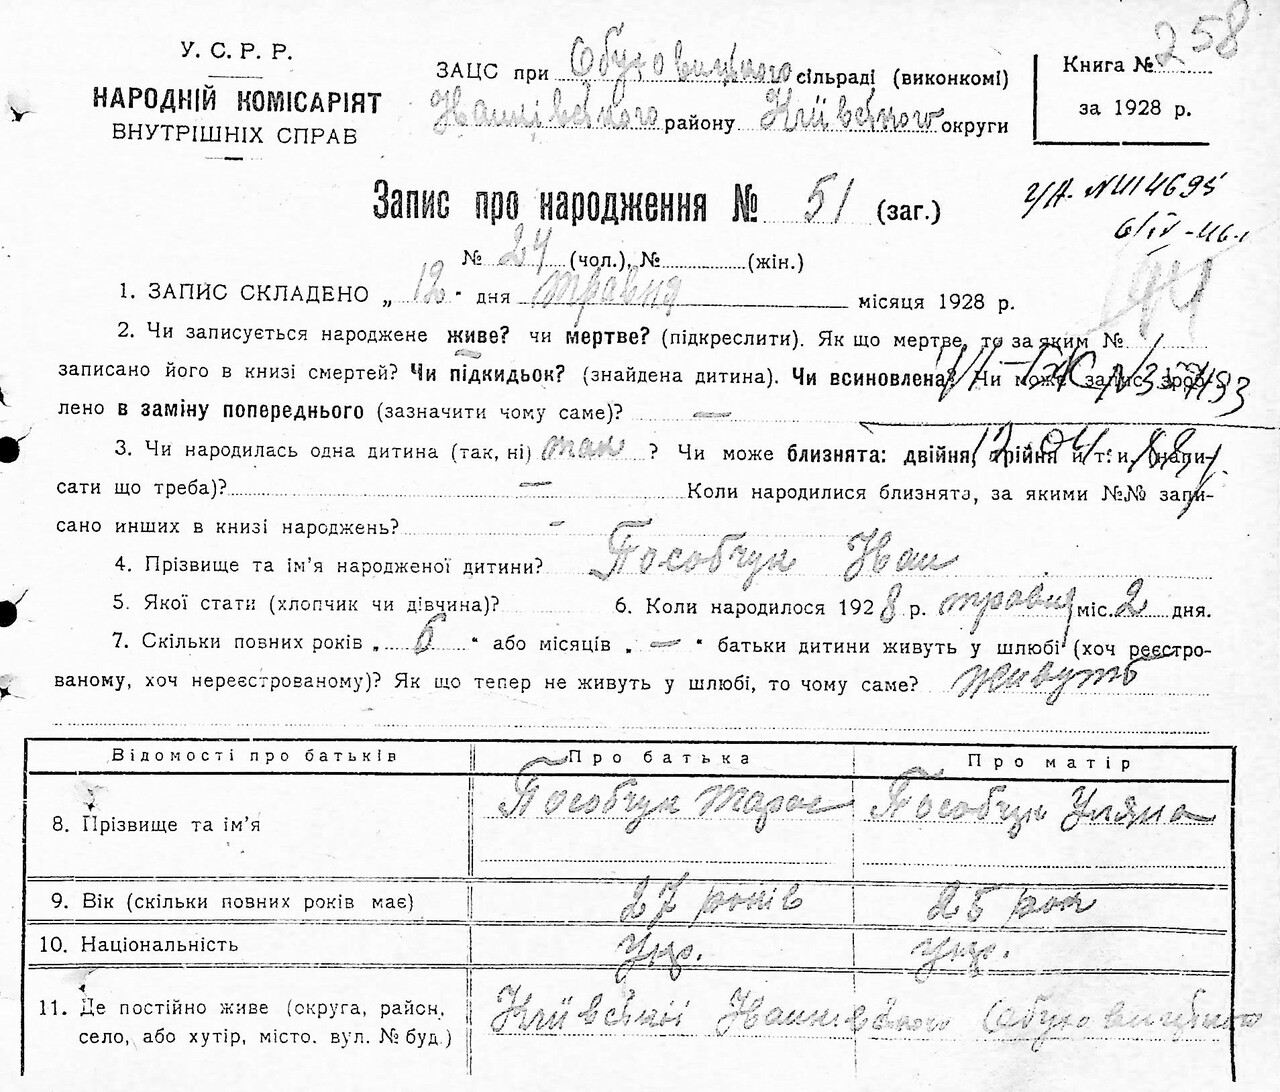 258
У. С. Р. Р.
НАРОДНІЙ КОМІСАРІЯТ
ВНУТРІШНІХ СПРАВ
ЗАЦС при Обуховицького сільраді (виконкомі)
району Київського округи
Книга №
за 1928 р.
Запис про народження № 51 (заг.)
№ 24 (чол.), № (жін.)
6/IV-46
1. ЗАПИС СКЛАДЕНО „ 12 " дня травня місяця 1928 р.
2. Чи записується народжене живе? чи мертве? (підкреслити). Як що мертве, то за яким №
записано його в книзі смертей? Чи підкидьок? (знайдена дитина). Чи всиновлена? Чи може запис зроб-
лено в заміну попереднього (зазначити чому саме)? —
3. Чи народилась одна дитина (так, ні) так ? Чи може близнята: двійня, трійня и т. и. (напи-
сати що треба)? — Коли народилися близнята, за якими №№ запи-
сано инших в книзі народжень? -
4. Прізвище та ім'я народженої дитини? Пособчук Іван
5. Якої стати (хлопчик чи дівчина)? 6. Коли народилося 1928 р. травня міс. 2 дня.
7. Скільки повних років „ 6 " або місяців „ — " батьки дитини живуть у шлюбі (хоч реєстро-
ваному, хоч нереєстрованому)? Як що тепер не живуть у шлюбі, то чому саме? живуть
Відомості про батьків Про батька Про матір
8. Прізвище та ім'я Пособчук Тарас Пособчук Уляна
9. Вік (скільки повних років має) 27 років 25 рок
10. Національність Укр. Укр.
11. Де постійно живе (округа, район,
село, або хутір, місто. вул. № буд.)